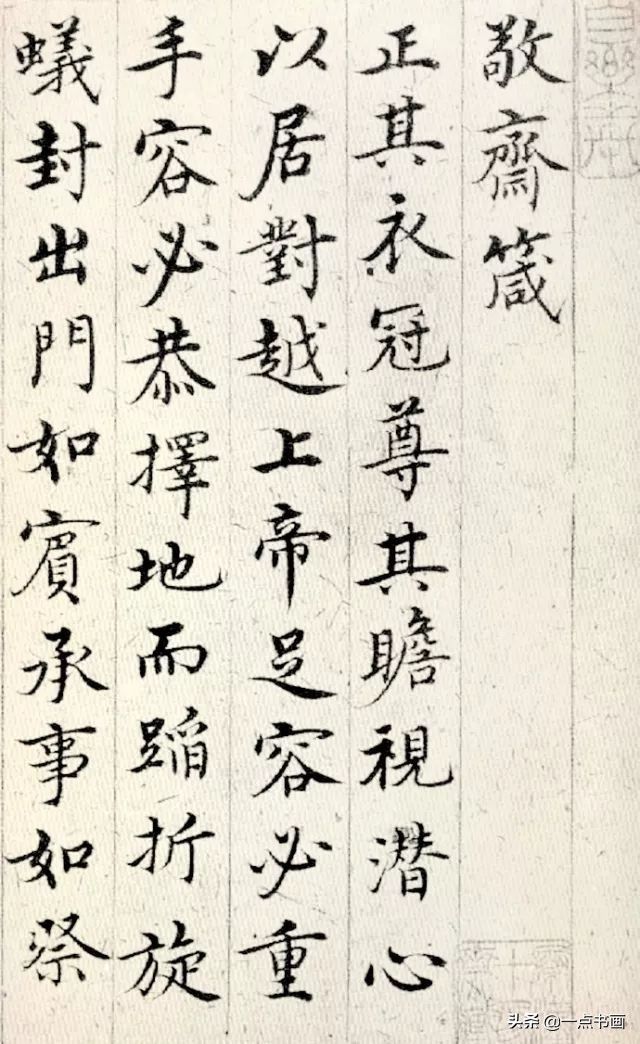 敬齋箴
正其衣冠尊其瞻視潛心
以居對越上帝足容必重
手容必恭擇地而蹈折旋
蟻封出門如賓承事如祭
头条 @一点书画